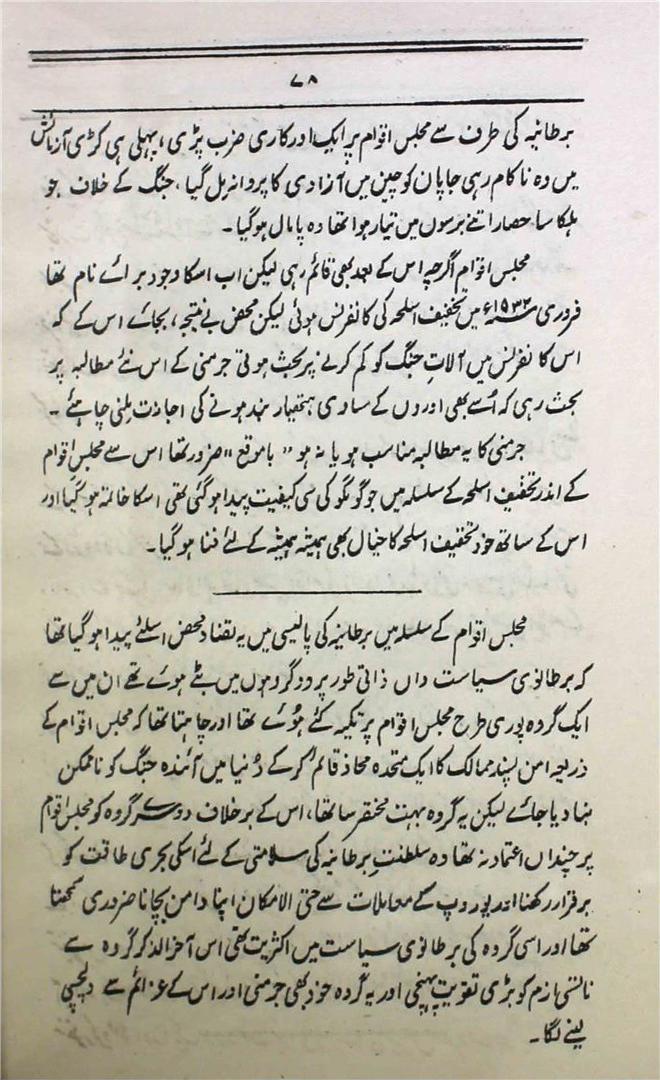 ۷۸
برطانیہ کی طرف سے مجلس اقوام پر ایک اور کاری ضرب پڑی، پہلی ہی کڑی آزمائش
میں وہ ناکام رہی جاپان کو چین میں آزادی کا پروانہ مل گیا، جنگ کے خلاف جو
ہلکا سا حصار اتنے برسوں میں تیار ہوا تھا وہ پامال ہوگیا۔
مجلس اقوام اگرچہ اس کے بعد بھی قائم رہی لیکن اب اسکا وجود برائے نام تھا
فروری ۱۹۳۲ء میں تخفیف اسلحہ کی کانفرنس ہوئی لیکن محض بے نتیجہ، بجائے اس کے کہ
اس کانفرنس میں آلاتِ جنگ کو کم کرنے پر بحث ہوتی جرمنی کے اس نئے مطالبہ پر
بحث رہی کہ اُسے بھی اوروں کے مساوی ہتھیار بند ہونے کی اجازت ملنی چاہئے۔
جرمنی کا یہ مطالبہ مناسب ہو یا نہ ہو "باموقع" ضرور تھا اس سے مجلس اقوام
کے اندر تخفیف اسلحہ کے سلسلہ میں جو گومگو کی سی کیفیت پیدا ہوگئی تھی اسکا خاتمہ ہوگیا اور
اس کے ساتھ خود تخفیف اسلحہ کا خیال بھی ہمیشہ ہمیشہ کے لئے فنا ہوگیا۔
مجلس اقوام کے سلسلہ میں برطانیہ کی پالیسی میں یہ تضاد محض اسلئے پیدا ہوگیا تھا
کہ برطانوی سیاست داں ذاتی طور پر دو گروہوں میں بٹے ہوئے تھے ان میں سے
ایک گروہ پوری طرح مجلس اقوام پر تکیہ کئے ہوئے تھا اور چاہتا تھا کہ مجلس اقوام کے
ذریعہ امن پسند ممالک کا ایک متحدہ محاذ قائم کرکے دُنیا میں آئندہ جنگ کو ناممکن
بنا دیا جائے لیکن یہ گروہ بہت مختصر سا تھا، اس کے برخلاف دوسرے گروہ کو مجلس اقوام
پر چنداں اعتماد نہ تھا وہ سلطنتِ برطانیہ کی سلامتی کے لئے اسکی بحری طاقت کو
برقرار رکھنا اور یوروپ کے معاملات سے حتی الامکان اپنا دامن بچانا ضروری سمجھتا
تھا اور اسی گروہ کی برطانوی سیاست میں اکثریت تھی اس آخر الذکر گروہ سے
ناتسی ازم کو بڑی تقویت پہنچی اور یہ گروہ خود بھی جرمنی اور اس کے عزائم سے دلچسپی
لینے لگا۔